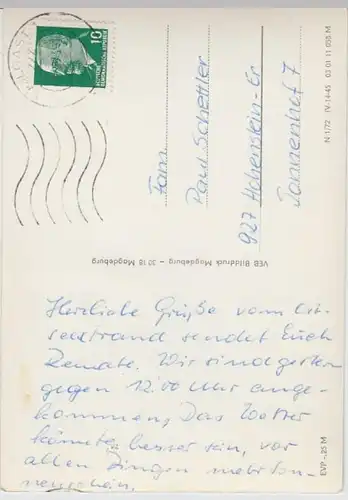 10
DEUTSCHE
DEMOKRATISCHE REPUBLIK
Fam.
Paul Schettler
927 Hohenstein-Er
Tannenhof 7
N 1/72 IV-14-45 03 01 11 058 M
VEB Bilddruck Magdeburg – 30 18 Magdeburg
EVP –,25 M
Herzliche Grüße vom Ost-
seestrand sendet Euch
Renate. Wir sind gestern
gegen 12.00 Uhr ange-
kommen. Das Wetter
könnte besser sein, vor
allen Dingen mehr Son-
nenschein.